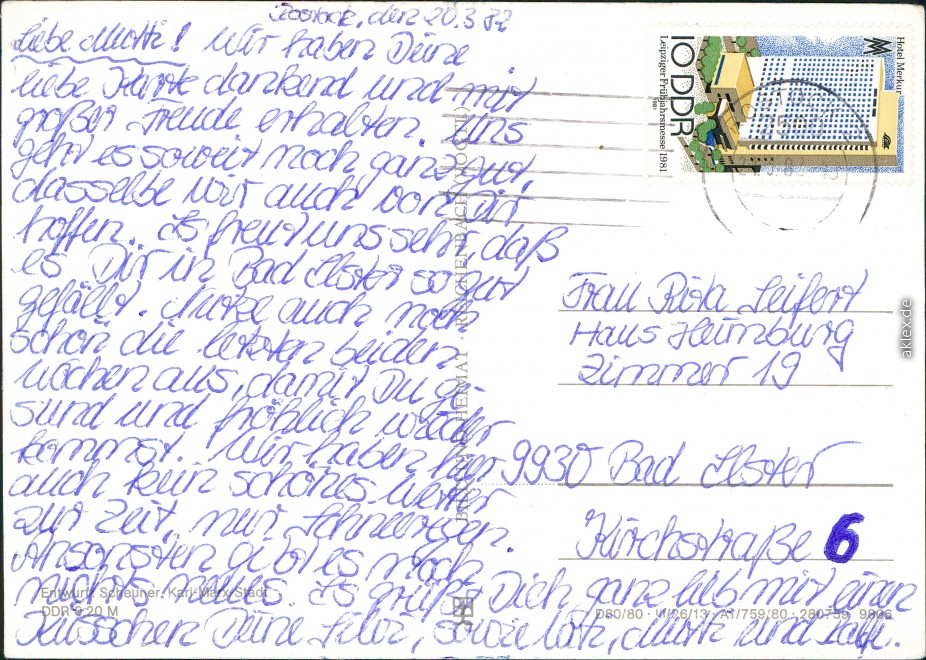 Rostock, den 20.3.82
Liebe Mutti! Wir haben Deine
liebe Karte dankend und mit
großer Freude erhalten. Uns
geht es soweit noch ganz gut,
dasselbe wir auch von Dir
hoffen. Es freut uns sehr, daß
es Dir in Bad Elster so gut
gefällt. Nutze auch noch
schön die letzten beiden
Wochen aus, damit Du ge-
sund und fröhlich wieder
kommst. Wir haben hier
auch kein schönes Wetter
zur Zeit, nur Schneeregen.
Ansonsten gibt es noch
nichts neues. Es grüßt Dich ganz lieb mit einen
Küsschen Deine
Frau Rita Leifert
Haus Heimburg
Zimmer 19
9930 Bad Elster
Kirchstraße 6
Hotel Merkur
10 DDR
Leipziger Frühjahrsmesse 1981
BILD UND HEIMAT REICHENBACH
Entwurf: Scheuner, Karl-Marx-Stadt
DDR 0,20 M
D80/80 · VI/26/13 · A1/759/80 · 280759 9806
aklex.de